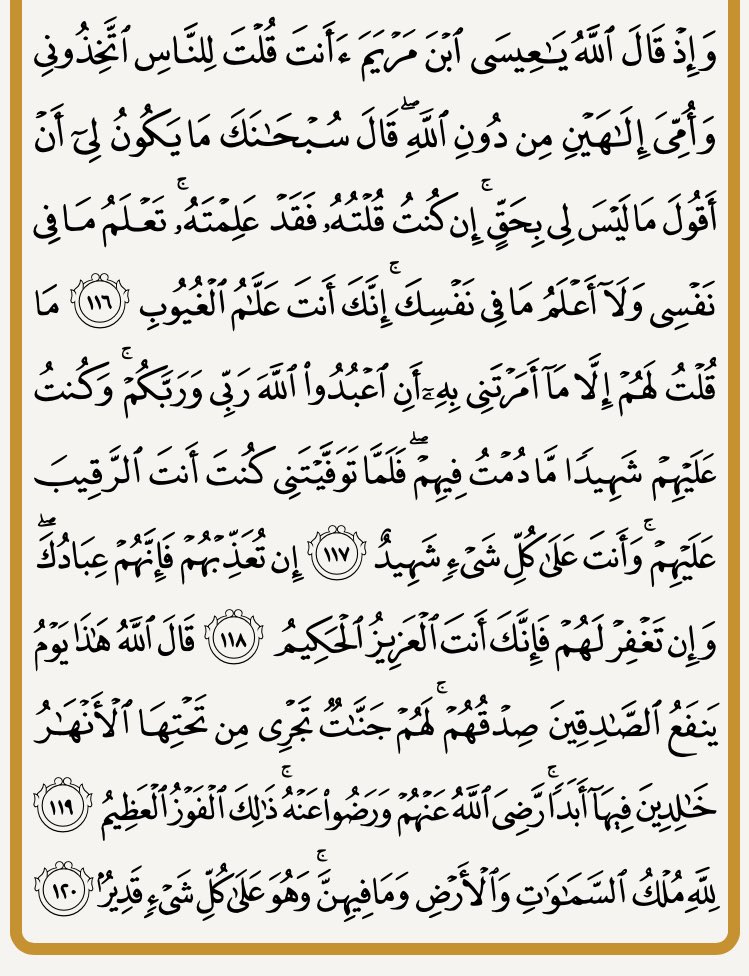 وَإِذْ قَالَ ٱللَّهُ يَـٰعِيسَى ٱبْنَ مَرْيَمَ ءَأَنتَ قُلْتَ لِلنَّاسِ ٱتَّخِذُونِى
وَأُمِّىَ إِلَـٰهَيْنِ مِن دُونِ ٱللَّهِ ۖ قَالَ سُبْحَـٰنَكَ مَا يَكُونُ لِىٓ أَنْ
أَقُولَ مَا لَيْسَ لِى بِحَقٍّ ۚ إِن كُنتُ قُلْتُهُۥ فَقَدْ عَلِمْتَهُۥ ۚ تَعْلَمُ مَا فِى
نَفْسِى وَلَآ أَعْلَمُ مَا فِى نَفْسِكَ ۚ إِنَّكَ أَنتَ عَلَّـٰمُ ٱلْغُيُوبِ ١١٦ مَا
قُلْتُ لَهُمْ إِلَّا مَآ أَمَرْتَنِى بِهِۦٓ أَنِ ٱعْبُدُوا۟ ٱللَّهَ رَبِّى وَرَبَّكُمْ ۚ وَكُنتُ
عَلَيْهِمْ شَهِيدًا مَّا دُمْتُ فِيهِمْ ۖ فَلَمَّا تَوَفَّيْتَنِى كُنتَ أَنتَ ٱلرَّقِيبَ
عَلَيْهِمْ ۚ وَأَنتَ عَلَىٰ كُلِّ شَىْءٍ شَهِيدٌ ١١٧ إِن تُعَذِّبْهُمْ فَإِنَّهُمْ عِبَادُكَ ۖ
وَإِن تَغْفِرْ لَهُمْ فَإِنَّكَ أَنتَ ٱلْعَزِيزُ ٱلْحَكِيمُ ١١٨ قَالَ ٱللَّهُ هَـٰذَا يَوْمُ
يَنفَعُ ٱلصَّـٰدِقِينَ صِدْقُهُمْ ۚ لَهُمْ جَنَّـٰتٌ تَجْرِى مِن تَحْتِهَا ٱلْأَنْهَـٰرُ
خَـٰلِدِينَ فِيهَآ أَبَدًا ۚ رَّضِىَ ٱللَّهُ عَنْهُمْ وَرَضُوا۟ عَنْهُ ۚ ذَٰلِكَ ٱلْفَوْزُ ٱلْعَظِيمُ ١١٩
لِلَّهِ مُلْكُ ٱلسَّمَـٰوَٰتِ وَٱلْأَرْضِ وَمَا فِيهِنَّ ۚ وَهُوَ عَلَىٰ كُلِّ شَىْءٍ قَدِيرٌۢ ١٢٠